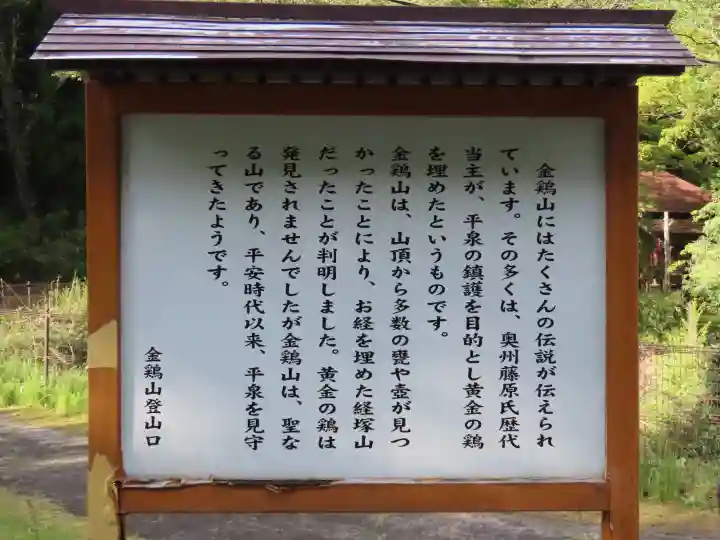 金鶏山にはたくさんの伝説が伝えられ
ています。その多くは、奥州藤原氏歴代
当主が、平泉の鎮護を目的とし黄金の鶏
を埋めたというものです。
金鶏山は、山頂から多数の甕や壺が見つ
かったことにより、お経を埋めた経塚山
だったことが判明しました。黄金の鶏は
発見されませんでしたが金鶏山は、聖な
る山であり、平安時代以来、平泉を見守
ってきたようです。
金鶏山登山口